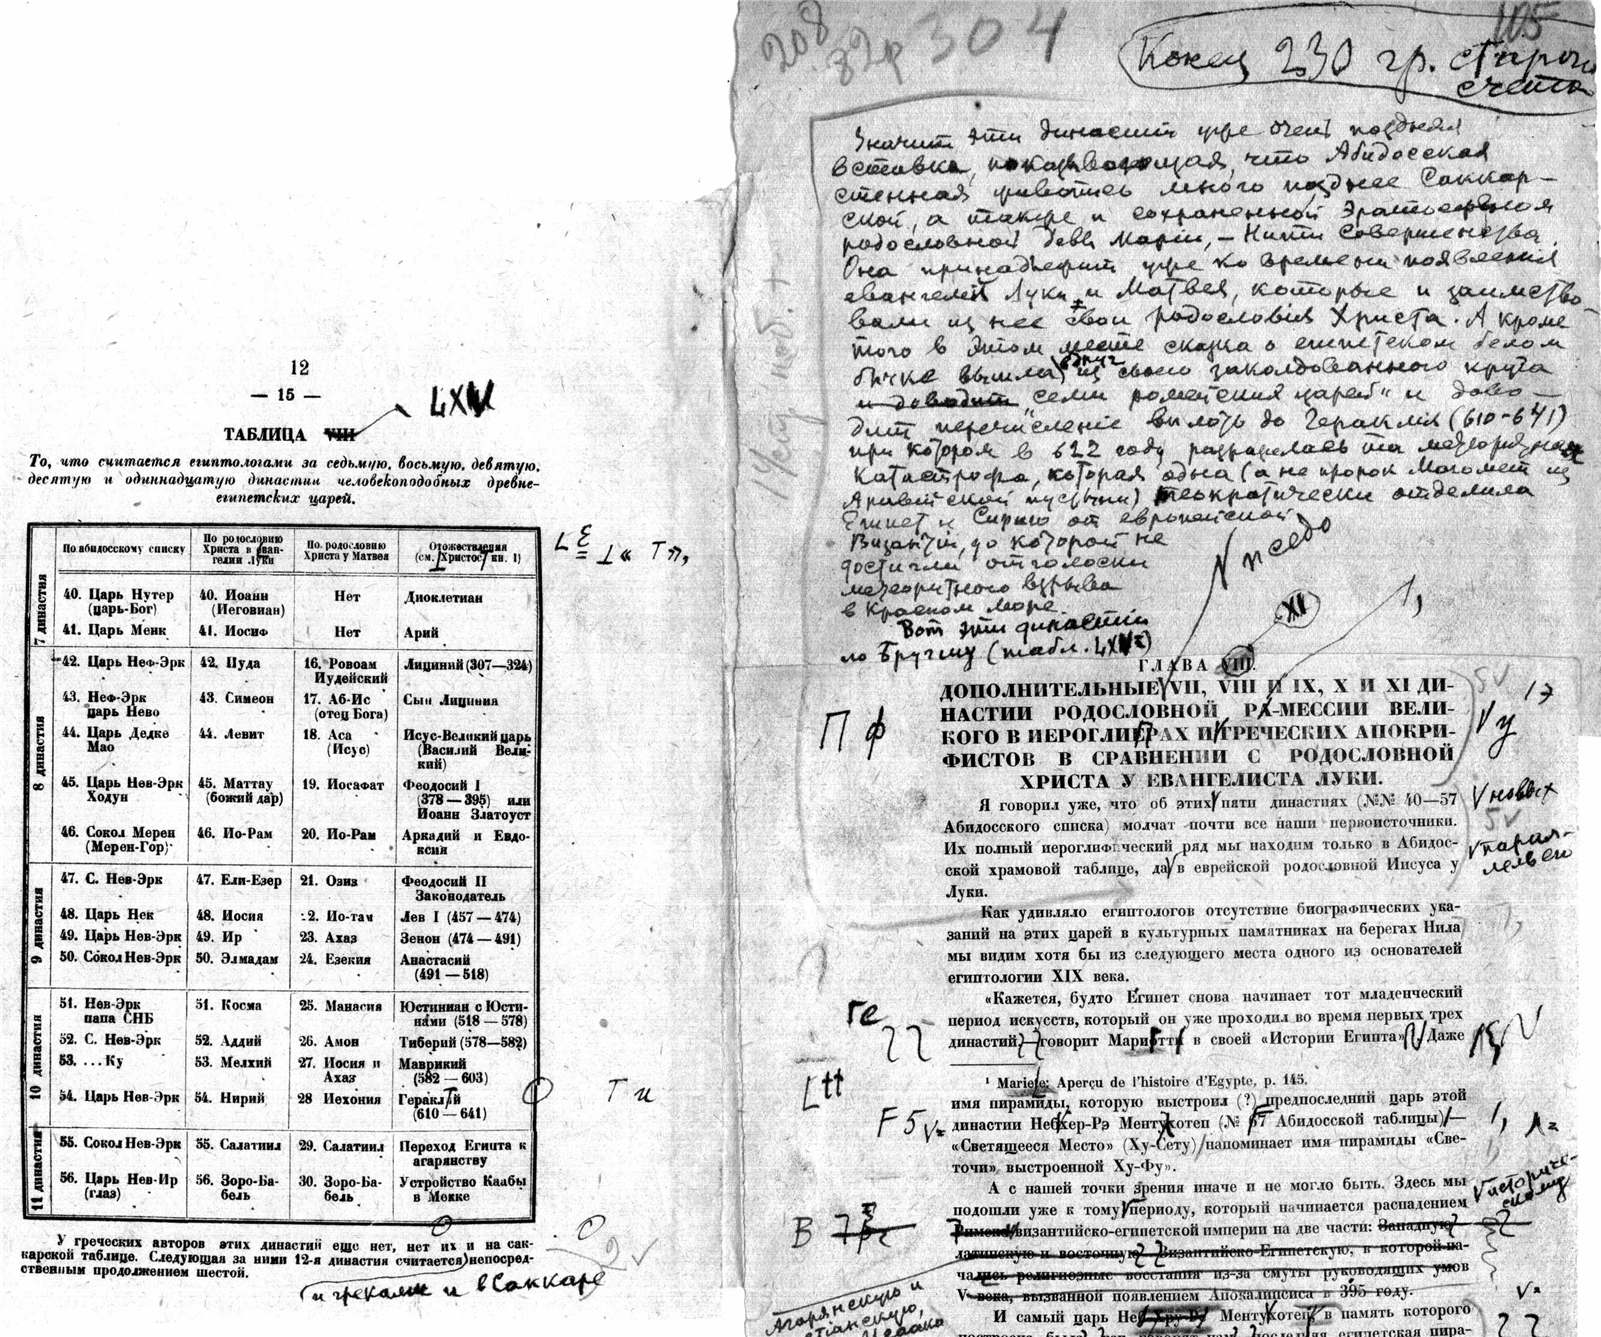 12
— 15 —
LXV
ТАБЛИЦА VIII
То, что считается египтологами за седьмую, восьмую, девятую,
десятую и одиннадцатую династии человекоподобных древне-
египетских царей.
По абидосскому списку | По родословию Христа в еван-гелии Луки | По родословию Христа у Матвея | Отожествления (см. Христос, кн. I)
7 династия
40. Царь Нутер (царь-Бог) | 40. Иоанн (Иеговиан) | Нет | Диоклетиан
41. Царь Менк | 41. Иосиф | Нет | Арий
8 династия
42. Царь Неф-Эрк | 42. Иуда | 16. Ровоам Иудейский | Лициний (307—324)
43. Неф-Эрк царь Нево | 43. Симеон | 17. Аб-Ис (отец Бога) | Сын Лициния
44. Царь Дедке Мао | 44. Левит | 18. Аса (Исус) | Исус-Великий царь (Василий Вели-кий)
45. Царь Нев-Эрк Ходун | 45. Маттау (божий дар) | 19. Иосафат | Феодосий I (378—395) или Иоанн Златоуст
46. Сокол Мерен (Мерен-Гор) | 46. Ио-Рам | 20. Ио-Рам | Аркадий и Евдо-ксия
9 династия
47. С. Нев-Эрк | 47. Ели-Езер | 21. Озия | Феодосий II Законодатель
48. Царь Нек | 48. Иосия | 22. Ио-там | Лев I (457—474)
49. Царь Нев-Эрк | 49. Ир | 23. Ахаз | Зенон (474—491)
50. Сокол Нев-Эрк | 50. Элмадам | 24. Езекия | Анастасий (491—518)
10 династия
51. Нев-Эрк папа СНБ | 51. Косма | 25. Манасия | Юстиниан с Юсти-нами (518—578)
52. С. Нев-Эрк | 52. Аддий | 26. Амон | Тиберий (578—582)
53. ...Ку | 53. Мелхий | 27. Иосия и Ахаз | Маврикий (582—603)
54. Царь Нев-Эрк | 54. Нирий | 28 Иехония | Гераклий (610—641)
11 династия
55. Сокол Нев-Эрк | 55. Салатиил | 29. Салатиил | Переход Египта к агарянству
56. Царь Нев-Ир (глаз) | 56. Зоро-Ба-бель | 30. Зоро-Ба-бель | Устройство Каабы в Мекке
У греческих авторов этих династий еще нет, нет их и на сак-
карской таблице. Следующая за ними 12-я династия считается непосред-
ственным продолжением шестой.
и греками и в Саккаре
304
105
Конец 230 гр. старого
счета
Значит эти династии уже очень поздняя
вставка, показывающая, что Абидосская
стенная живопись много позднее Саккар-
ской, а также и сохраненной Эратосфеном
родословной Девы Марии, — Нити Совершенства.
Она принадлежит уже ко времени появления
евангелий Луки и Матвея, которые и заимство-
вали из нее свои родословия Христа. А кроме
того в этом месте сказка о египетском белом
бычке вышла вдруг из своего заколдованного круга
и доводит „семи ромейских царей“ и дово-
дит перечисление вплоть до Гераклия (610-641)
при котором в 622 году разразилась та метеоритная
катастрофа, которая одна (а не пророк Магомет из
Аравийской пустыни) теократически отделила
Египет и Сирию от европейской
Византии, до которой не
достигли отголоски
метеоритного взрыва
в Красном море.
Вот эти династии
по Бругшу (табл. LXV)
псевдо
XI
ГЛАВА VIII.
ДОПОЛНИТЕЛЬНЫЕ VII, VIII И IX, X И XI ДИ-
НАСТИИ РОДОСЛОВНОЙ РА-МЕССИИ ВЕЛИ-
КОГО В ИЕРОГЛИФАХ И ГРЕЧЕСКИХ АПОКРИ-
ФИСТОВ В СРАВНЕНИИ С РОДОСЛОВНОЙ
ХРИСТА У ЕВАНГЕЛИСТА ЛУКИ.
Я говорил уже, что об этих пяти династиях (№№ 40—57
Абидосского списка) молчат почти все наши первоисточники.
Их полный иероглифический ряд мы находим только в Абидос-
ской храмовой таблице, да в еврейской родословной Иисуса у
Луки.
новых
парал-
лельего
Как удивляло египтологов отсутствие биографических ука-
заний на этих царей в культурных памятниках на берегах Нила
мы видим хотя бы из следующего места одного из основателей
египтологии XIX века.
«Кажется, будто Египет снова начинает тот младенческий
период искусств, который он уже проходил во время первых трех
династий,—говорит Мариетти в своей «Истории Египта». Даже
¹ Mariete: Aperçu de l'histoire d'Egypte, p. 145.
имя пирамиды, которую выстроил (?) предпоследний царь этой
династии Неб-Хер-Рэ Ментухотеп (№ 57 Абидосской таблицы)—
«Светящееся Место» (Ху-Сету) напоминает имя пирамиды «Све-
точи», выстроенной Ху-Фу».
А с нашей точки зрения иначе и не могло быть. Здесь мы
подошли уже к тому периоду, который начинается распадением
Римско-византийско-египетской империи на две части: Западную
латинскую и восточную Византийско-Египетскую, в которой на-
чались религиозные восстания из-за смуты руководящих умов
V века, вызванной появлением Апокалипсиса в 395 году.
историче-
скому
Агарянскую и
И самый царь Неб-Хру-Рэ Ментухотеп, в память которого